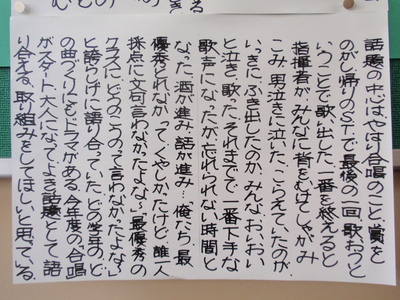 話題の中心は、やはり合唱のこと。賞を
のがし帰りのSTで最後の一回、歌おうと
いうことで歌い出した。一番を終えると
指揮者が、みんなに背をむけしゃがみ
こみ、男泣きに泣いた。こらえていたのが、
いっきに、ふき出したのか、みんな、おいおい
と泣き、歌った。それまでで一番下手な
歌声になったが忘れられない時間と
なった。酒が進み、話が進み…俺たち、最
優秀とれなかってくやしかったけど、誰一人
採点に文句言わなかったよな。最優秀の
クラスにどうのこうのって言わなかったよな。」
と誇らしげに語り合っていた。どの学年のど
の曲づくりにもドラマがある。今年度の、合唱
がスタート。大人になってよき話題として語
り合える、取り組みをしてほしいと思べている。